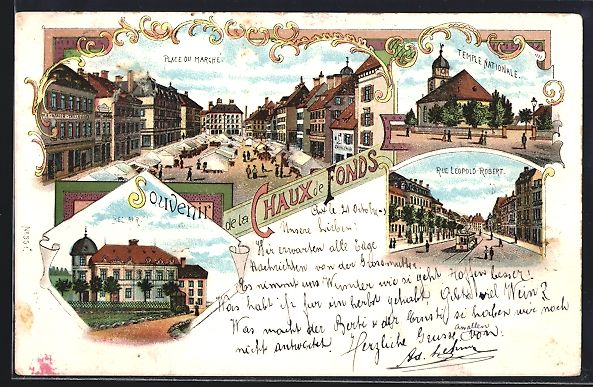 PLACE DU MARCHÉ.
TEMPLE NATIONALE.
Souvenir
de la CHAUX de FONDS
RUE LEOPOLD-ROBERT.
BEL AIR
Unsere Lieben!
Wir erwarten alle Tage
Nachrichten von der Grossmutter.
Es nimmt uns Wunder wie si geht hoffen besser!
Was habt ihr für ein herbst gehabt Gibt es viel Wein?
Was macht der Bertha & der Ernst si haben mir noch
nicht antwortet Herzliche Grüsse an allen von: